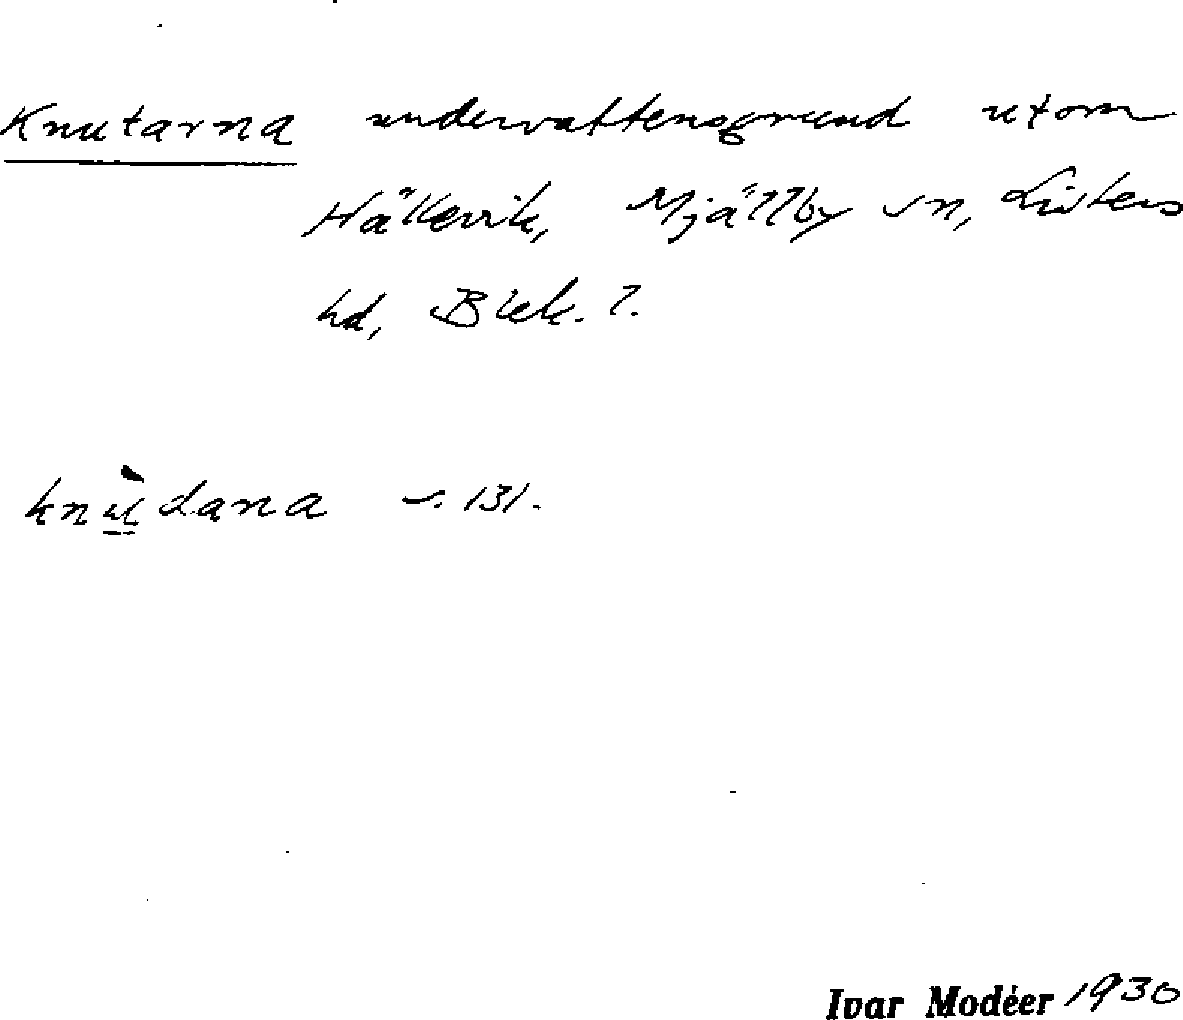 Knutarna undervattensgrund utom
Hällevik, Mjällby sn, Listers
hd, Blek. l.
knùdana s. 131.
Ivar Modéer 1930